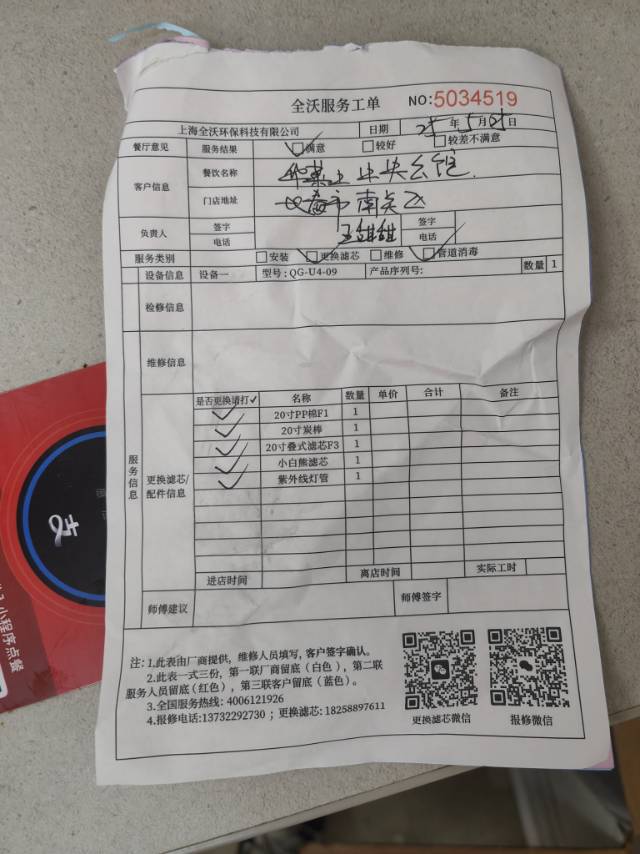 全沃服务工单 NO:5034519
上海全沃环保科技有限公司 日期 25年5月 日
餐厅意见 服务结果 ☑满意 □较好 □较差不满意
客户信息 餐饮名称 华莱士中央公馆
门店地址 长春市南关区
负责人 签字 王甜甜 签字
电话 电话
服务类别 □安装 ☑更换滤芯 □维修 ☑管道消毒
设备信息 设备一 型号:QG-U4-09 产品序列号: 数量 1
检修信息
维修信息
服务信息
更换滤芯/配件信息
是否更换请打✓ 名称 数量 单价 合计 备注
✓ 20寸PP棉F1 1
✓ 20寸炭棒 1
✓ 20寸叠式滤芯F3 1
✓ 小白熊滤芯 1
✓ 紫外线灯管 1
进店时间 离店时间 实际工时
师傅建议 师傅签字
注:1.此表由厂商提供,维修人员填写,客户签字确认。
2.此表一式三份,第一联厂商留底(白色),第二联
服务人员留底(红色),第三联客户留底(蓝色)。
3.全国服务热线:4006121926
4.报修电话:13732292730;更换滤芯:18258897611
更换滤芯微信 报修微信
支
小程序点餐